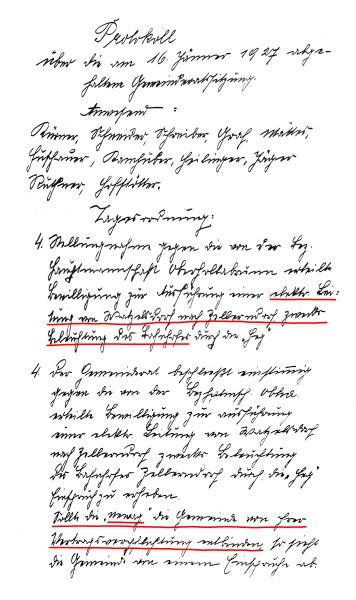 Protokoll
über die am 16. Jänner 1927 abge-
haltene Gemeinderatssitzung.
Anwesend :
Kürner, Schneider Schreiber, Graf, Mattes,
Huschauer, Kamhuber, Heilinger, Jäger
Ruthner, Hofstötter.
Tagesordnung:
4. Stellungnahme gegen die von der Bez.
Hauptmannschaft Oberhollabrunn erteilte
Bewilligung zur Ausführung einer elektr. Lei-
tung von Watzelsdorf nach Zellerndorf zwecks
Beleuchtung des Bahnhofes durch die „Heg"
4. Der Gemeinderat beschließt einstimmig
gegen die von der Bezhptmsch. Obha.
erteilte Bewilligung zur Ausführung
einer elektr. Leitung von Watzelsdorf
nach Zellerndorf zwecks Beleuchtung
des Bahnhofes Zellerndorf durch die „Heg"
Einspruch zu erheben.
Sollte die „Newag" die Gemeinde von ihrer
Vertragsverpflichtung entbinden, so sieht
die Gemeinde von einem Einspruche ab.